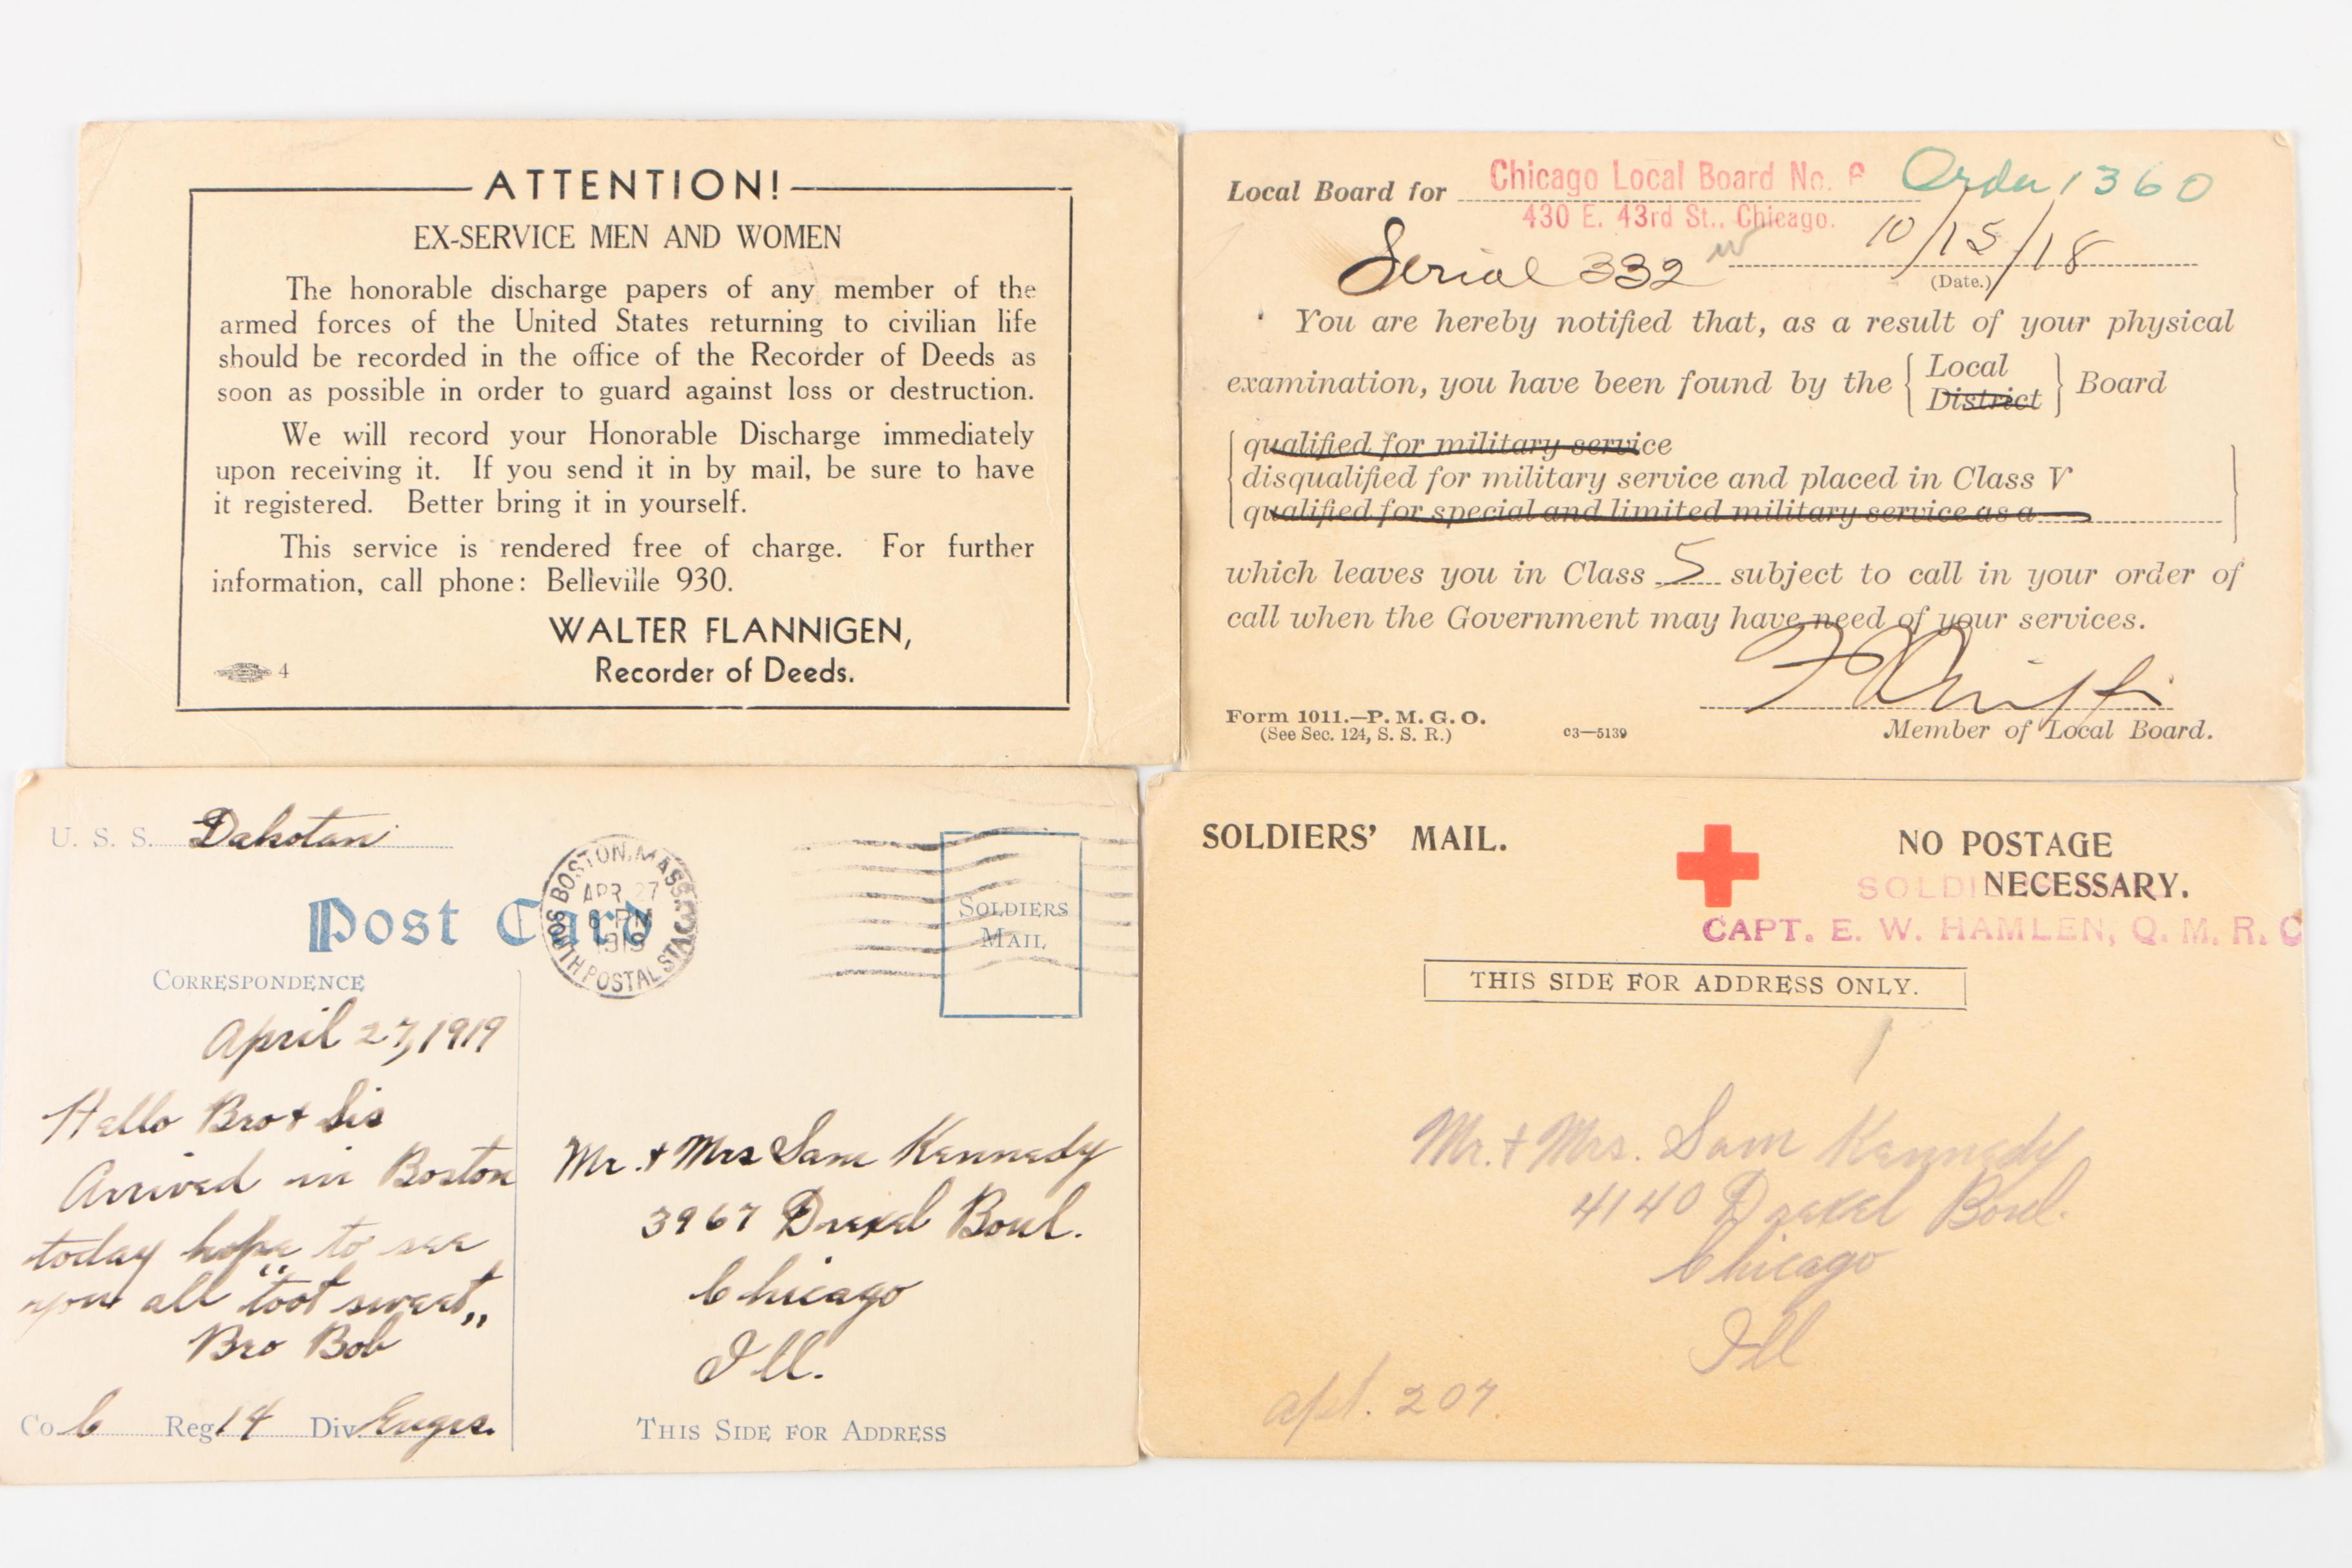 ATTENTION!
EX-SERVICE MEN AND WOMEN
The honorable discharge papers of any member of the
armed forces of the United States returning to civilian life
should be recorded in the office of the Recorder of Deeds as
soon as possible in order to guard against loss or destruction.
We will record your Honorable Discharge immediately
upon receiving it. If you send it in by mail, be sure to have
it registered. Better bring it in yourself.
This service is rendered free of charge. For further
information, call phone: Belleville 930.
WALTER FLANNIGEN,
Recorder of Deeds.
4
Local Board for Chicago Local Board No. Order 1360
430 E. 43rd St., Chicago.
Serial 332 10/15/18
(Date.)
You are hereby notified that, as a result of your physical
examination, you have been found by the { Local
District } Board
qualified for military service
disqualified for military service and placed in Class V
qualified for special and limited military service as a
which leaves you in Class 5 subject to call in your order of
call when the Government may have need of your services.
Form 1011.—P. M. G. O.
(See Sec. 124, S. S. R.) c3—5139
Member of Local Board.
U. S. S. Dakotan
Post Card
BOSTON, MASS.
APR 27
6 PM
1919
SOUTH POSTAL STA.
SOLDIERS
MAIL
CORRESPONDENCE
April 27, 1919
Hello Bro + Sis
Arrived in Boston
today hope to see
you all "toot sweet"
Bro Bob
Co C Reg 14 Div Engrs.
Mr. + Mrs Sam Kennedy
3967 Drexel Boul.
Chicago
Ill.
THIS SIDE FOR ADDRESS
SOLDIERS' MAIL.
NO POSTAGE
NECESSARY.
CAPT. E. W. HAMLEN, Q. M. R. C
THIS SIDE FOR ADDRESS ONLY.
Mr. + Mrs. Sam Kennedy
4140 Drexel Boul.
Chicago
Ill
Apt. 207.